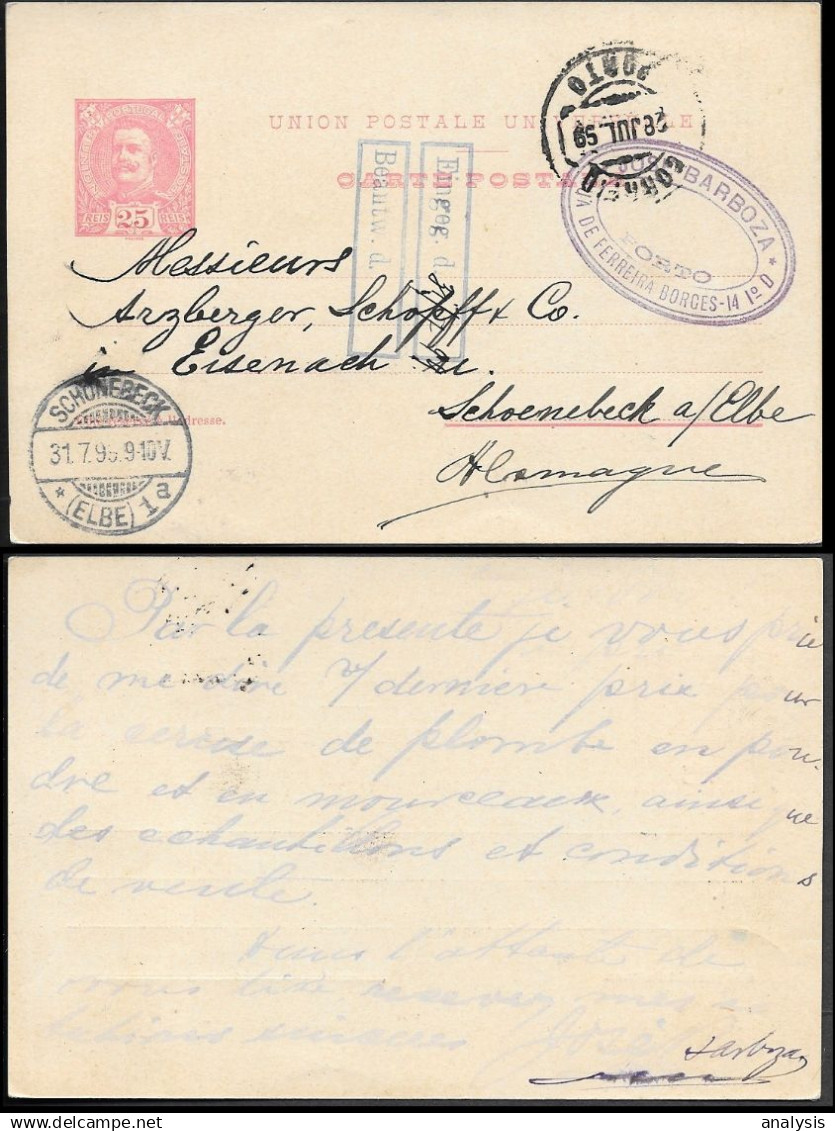 UNION POSTALE UNIVERSELLE
CARTE POSTALE
REIS 25 REIS
PORTO
28 JUL 99
CORREIO
JOSÉ BARBOZA
PORTO
DE FERREIRA BORGES-14 1º D
Eingeg. d.
Beantw. d.
Messieurs
Arzberger, Schöpff & Co.
in Eisenach
Schoenebeck a/Elbe
Alemagne
SCHÖNEBECK
31.7.99. 9-10V.
* (ELBE) 1a
Par la presente je vous prie
de me dire dernière prix pour
la ceruse de plombe en pou-
dre et en mourceaux, ainsi que
des echantillons et conditions
de vente.
Dans l'attente de
vous lire, recevez mes
sinceres José
Barboza
analysis